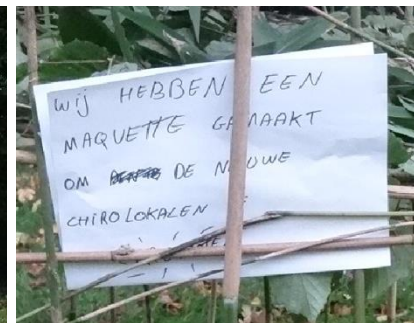 WIJ HEBBEN EEN
MAQUETTE GEMAAKT
OM DE NIEUWE
CHIROLOKALEN